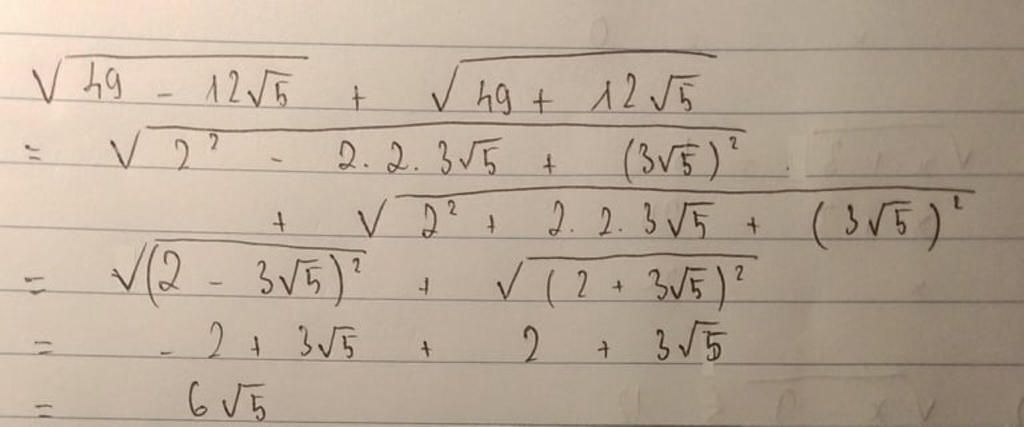 √(49 - 12√5) + √(49 + 12√5)
= √(2² - 2.2.3√5 + (3√5)²)
+ √(2² + 2.2.3√5 + (3√5)²)
= √((2 - 3√5)²) + √((2 + 3√5)²)
= - 2 + 3√5 + 2 + 3√5
= 6√5